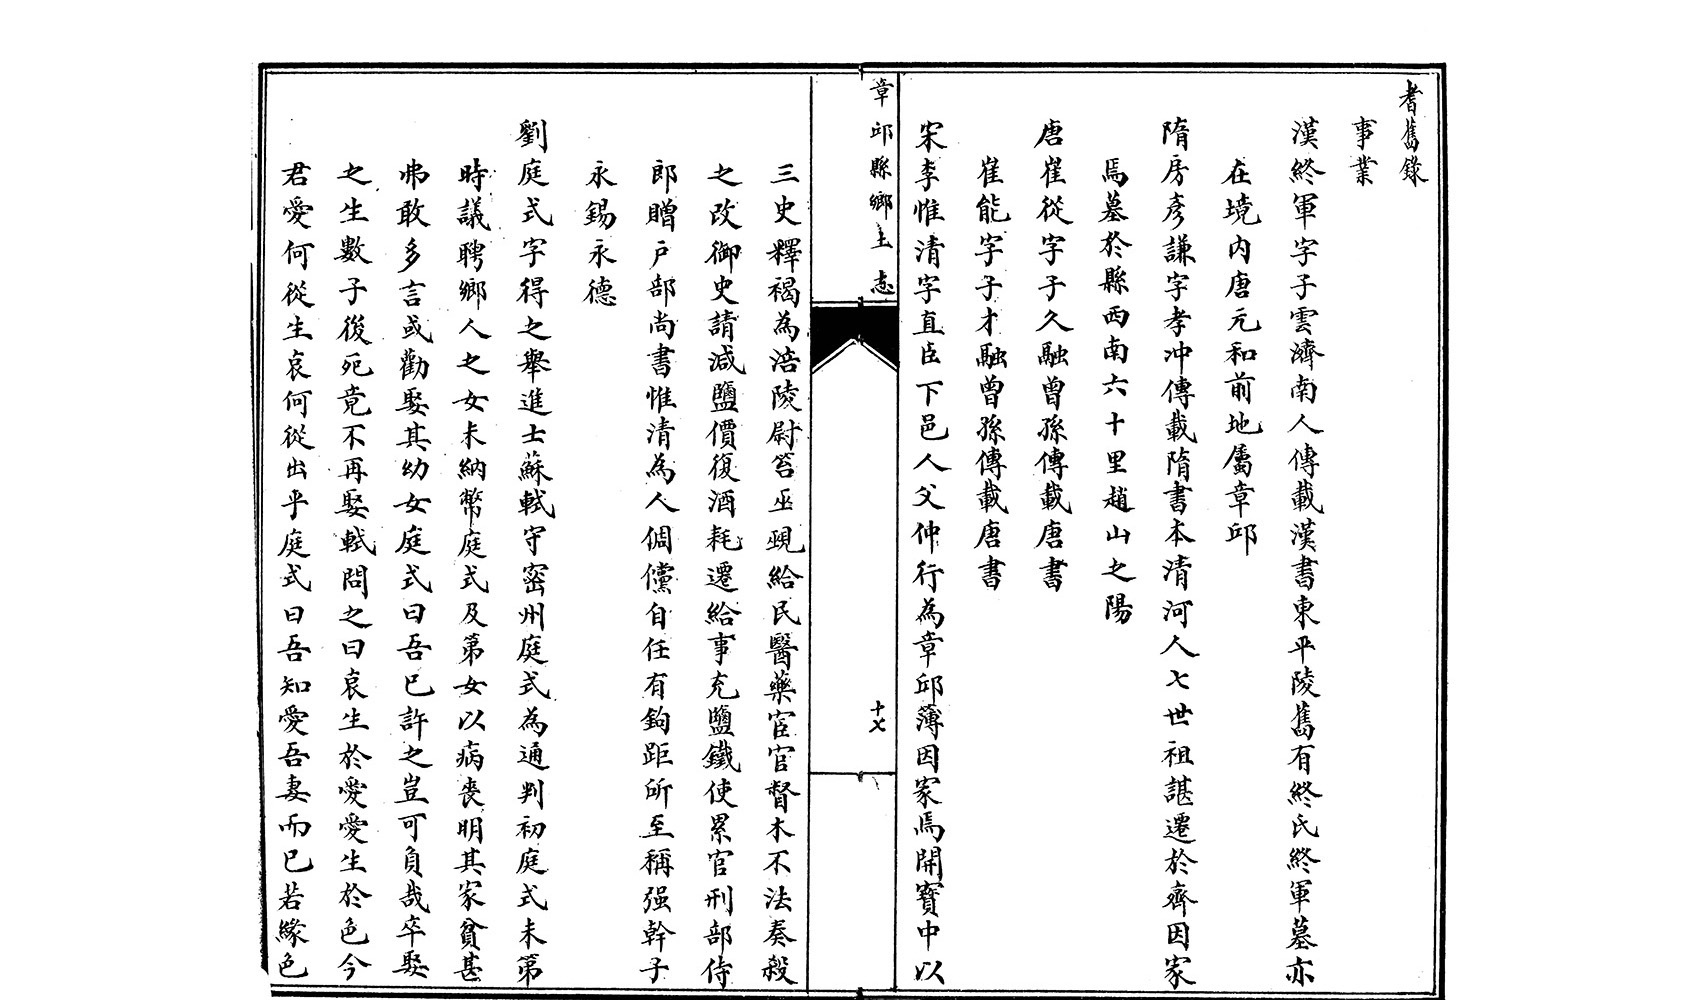 耆舊錄
事業
漢終軍字子雲濟南人傳載漢書東平陵舊有終氏終軍墓亦
在境内唐元和前地屬章邱
隋房彥謙字孝冲傳載隋書本清河人七世祖諶遷於齊因家
焉墓於縣西南六十里趙山之陽
唐崔從字子久融曾孫傳載唐書
崔能字子才融曾孫傳載唐書
宋李惟清字直臣下邑人父仲行為章邱簿因家焉開寶中以
章邱縣鄉土志
十七
三史釋褐為涪陵尉笞巫覡給民醫藥宦官督木不法奏殺
之改御史請減鹽價復酒耗遷給事充鹽鐵使累官刑部侍
郎贈戶部尚書惟清為人倜儻自任有鉤距所至稱强幹子
永錫永德
劉庭式字得之舉進士蘇軾守密州庭式為通判初庭式未第
時議聘鄉人之女未納幣庭式及第女以病喪明其家貧甚
弗敢多言或勸娶其幼女庭式曰吾已許之豈可負哉卒娶
之生數子後死竟不再娶軾問之曰哀生於愛愛生於色今
君愛何從生哀何從出乎庭式曰吾知愛吾妻而已若緣色